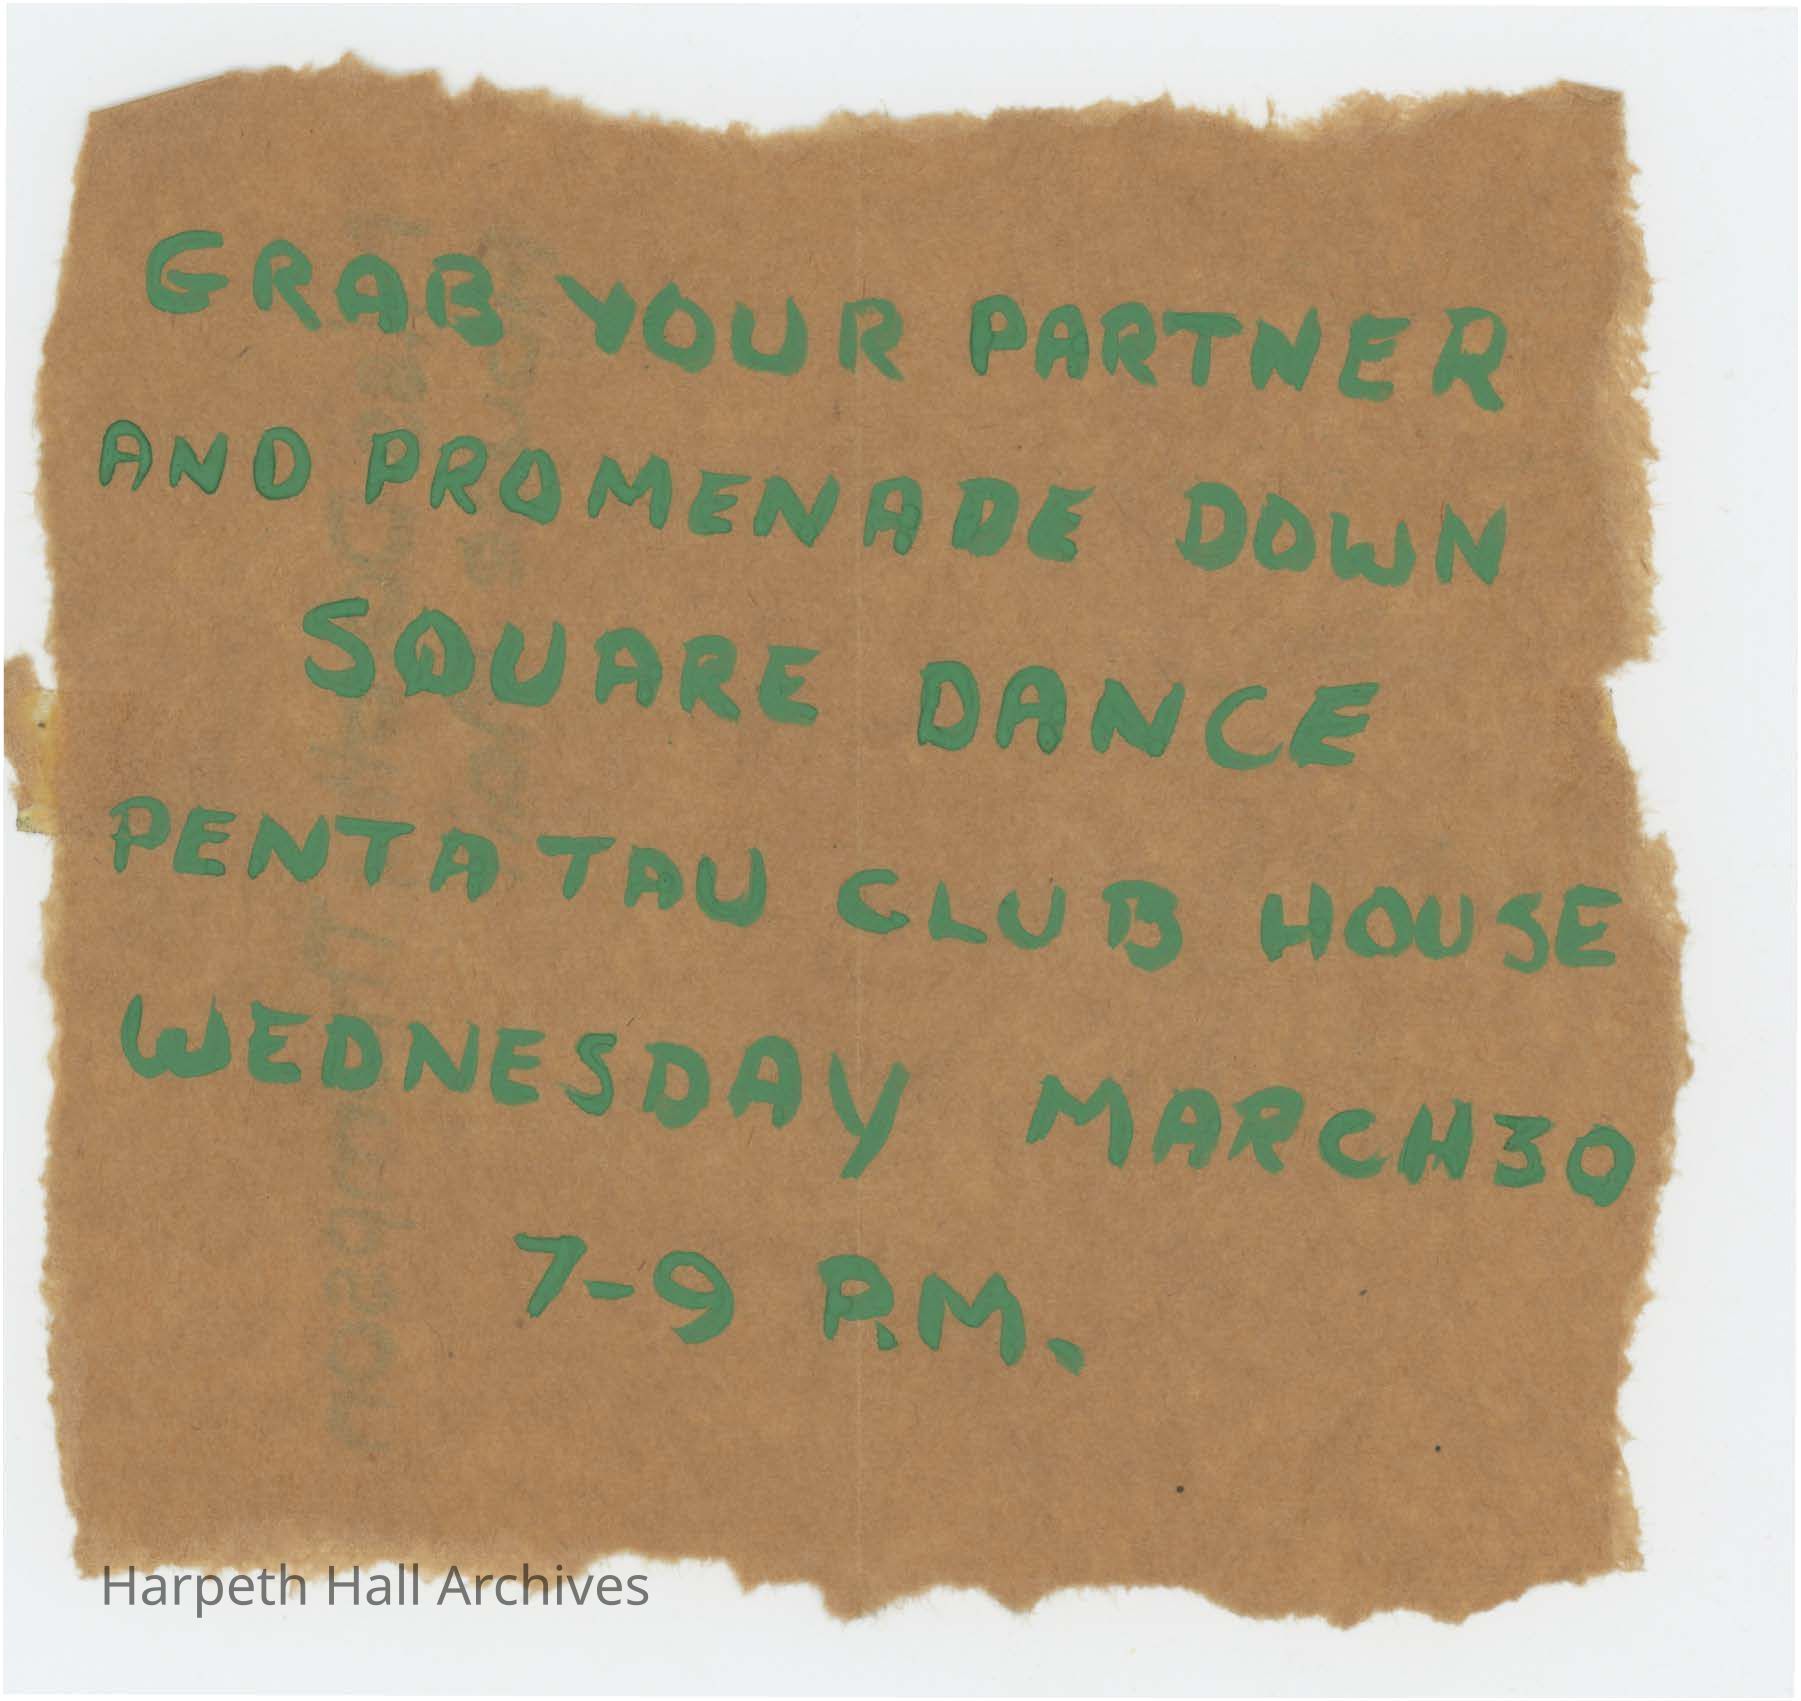 GRAB YOUR PARTNER
AND PROMENADE DOWN
SQUARE DANCE
PENTA TAU CLUB HOUSE
WEDNESDAY MARCH 30
7-9 P.M.
Harpeth Hall Archives